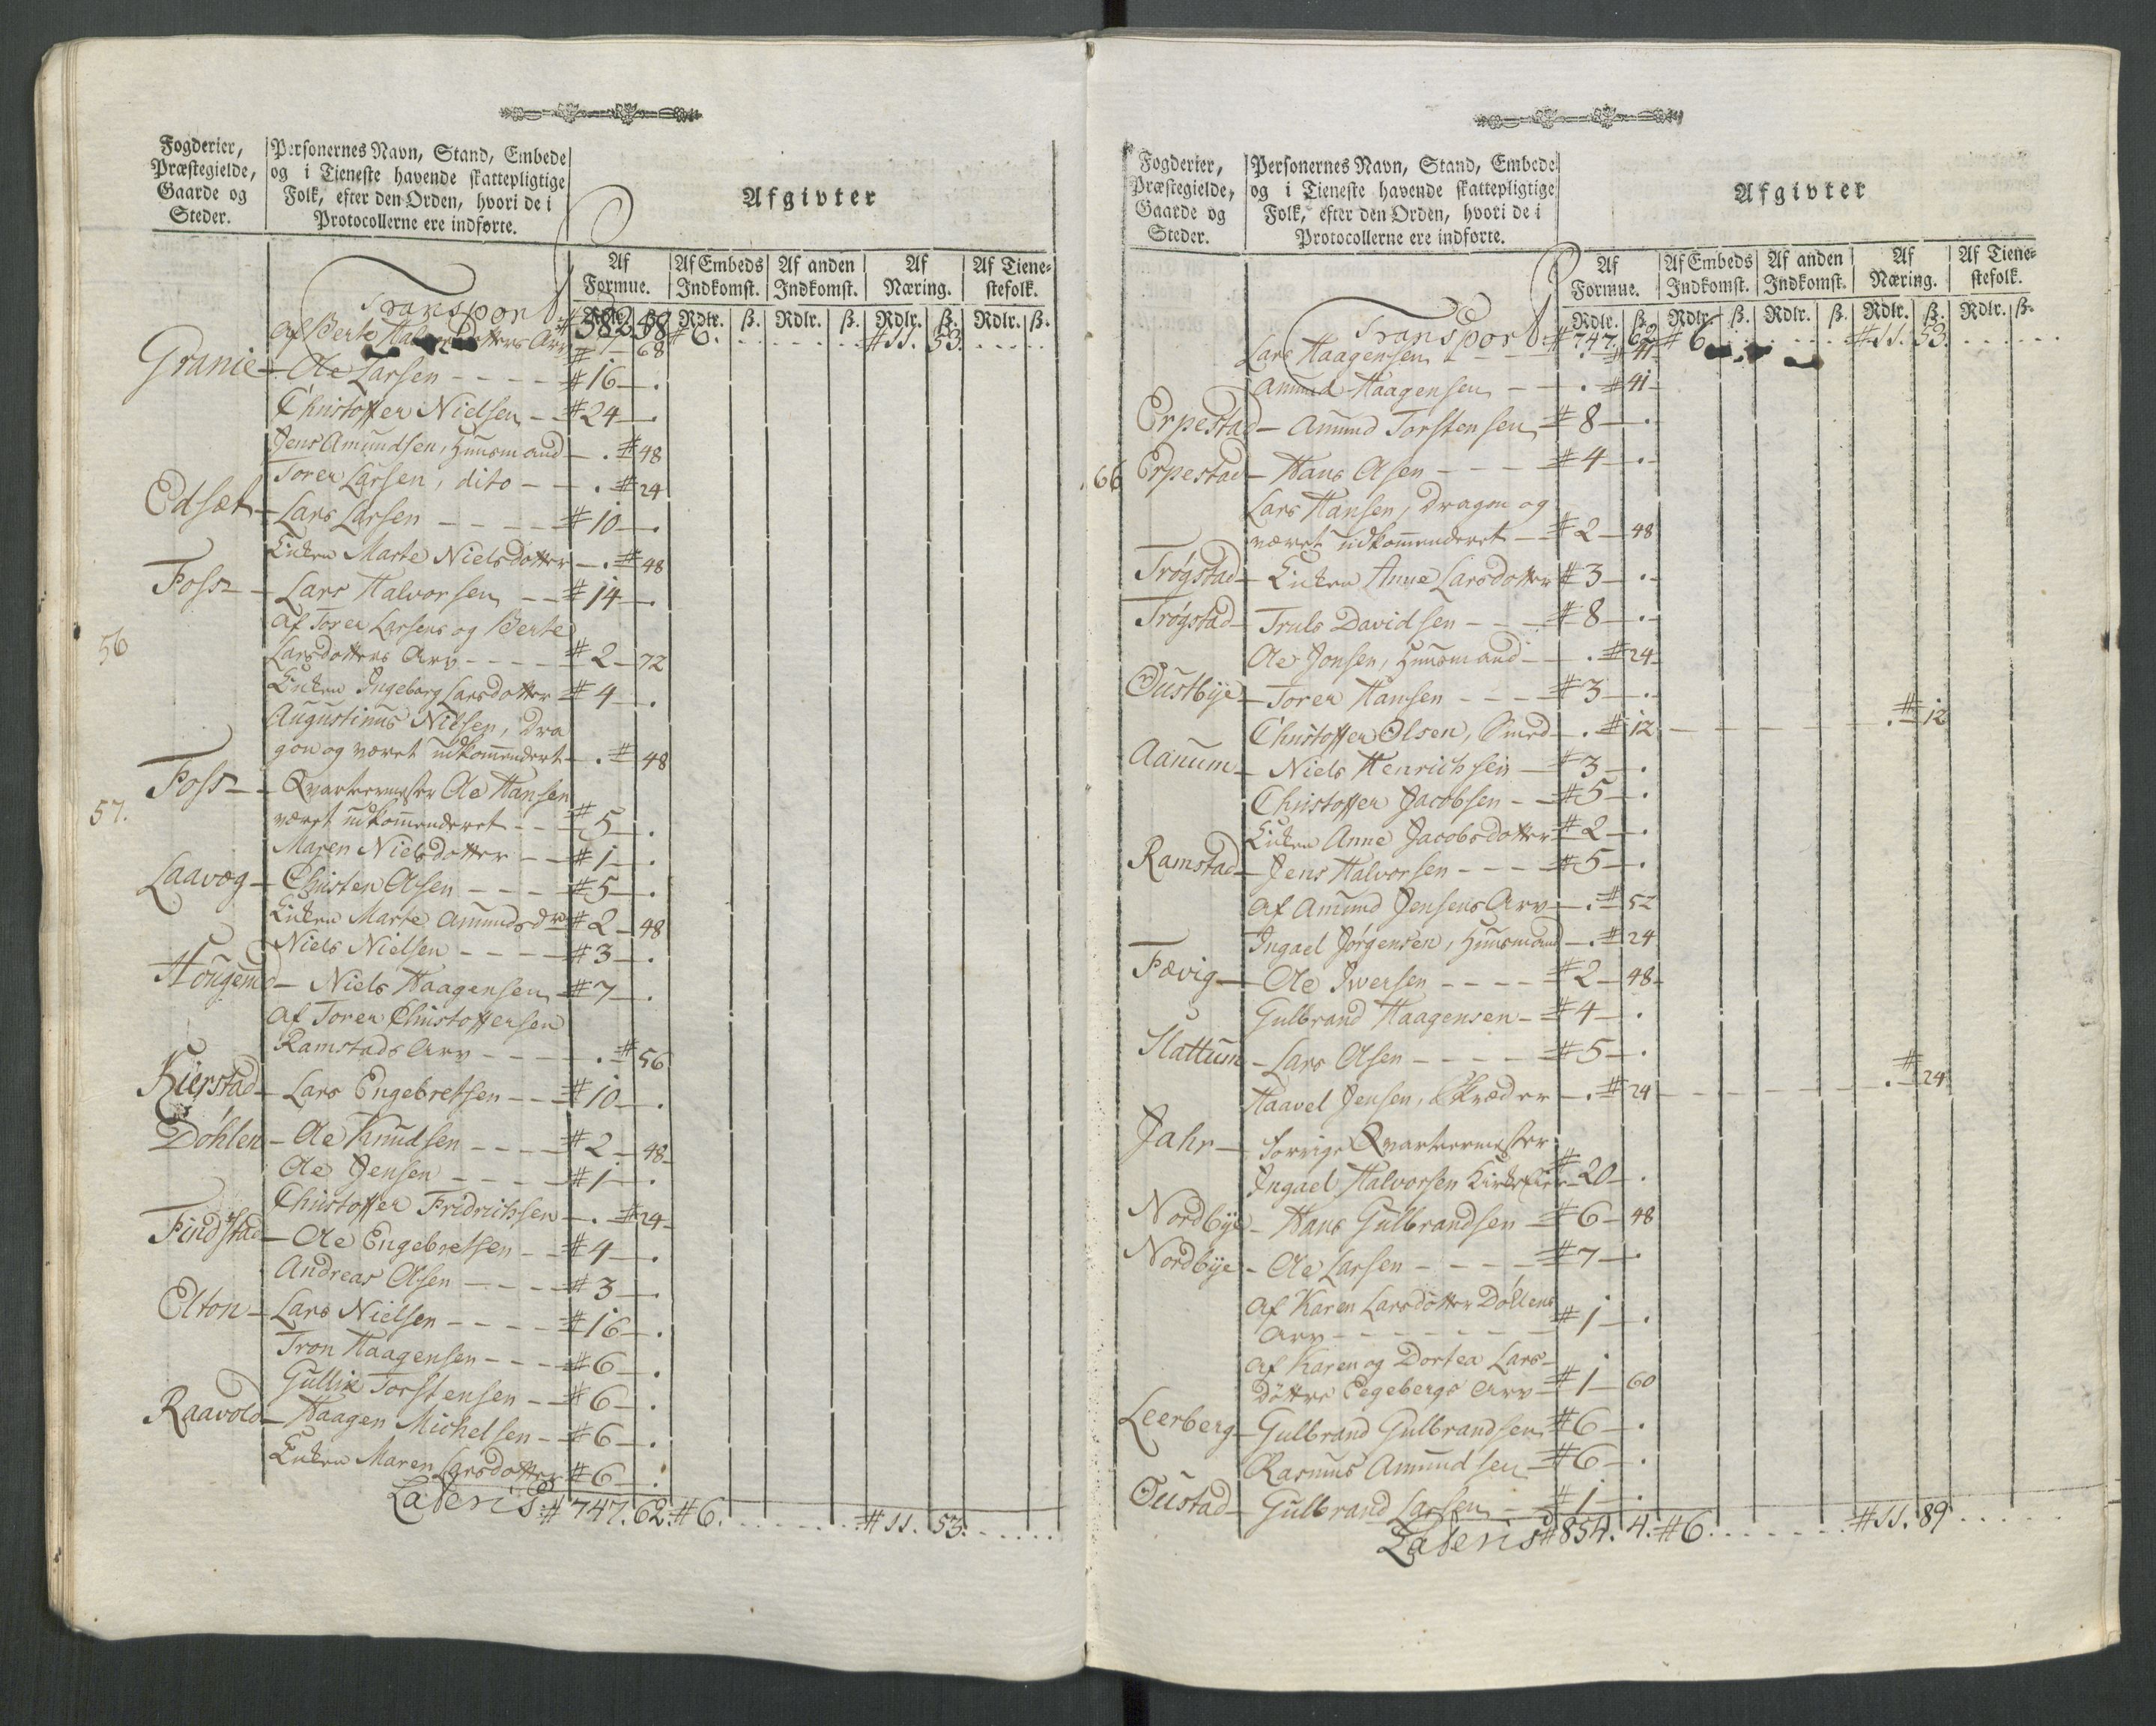 Fogderier, Præstegielde, Gaarde og Steder.
Personernes Navn, Stand, Embede og i Tieneste havende skattepligtige Folk, efter den Orden, hvori de i Protocollerne ere indførte.
Afgivter
Af Formue. Af Embeds Indkomst. Af anden Indkomst. Af Næring. Af Tienestefolk.
Rdlr. ß. Rdlr. ß. Rdlr. ß. Rdlr. ß. Rdlr. ß.
Transport # 582. 58 # 6. # 11. 53.
Af Berte Arv # 1 - 68
Granie - Ole Larsen - - - - # 16 - .
Christoffer Nielsen - # 24 - .
Jens Amundsen, Huusmand - . # 48
Torer Larsen, dito - - . # 24
Edsæt - Lars Larsen - - - - # 10 - .
Enken Marte Nielsdotter - . # 48
Foss - Lars Halvorsen - - # 14 - .
Af Torer Larsens og Berte
56
Larsdotters Arv - - - - # 2 - 72
Enken Ingeborg Larsdotter # 4 - .
Augustinus Nilsen, Dra
gon og været udkommendert - . # 48
Foss - Qvarteermester Ole Hansen
57.
været udkommenderet - - # 5 - .
Maren Nielsdotter - - # 1 - .
Laavøg - Christen Olsen - - - # 5 - .
Enken Marte Amundsdr # 2 - 48
Niels Nielsen - - - - # 3 - .
Hougen - Niels Haagensen # 7 - .
Af Torer Christoffersen
Ramstads Arv - - - - . # 56
Kierstad - Lars Engebretsen - - # 10 - .
Döhlen - Ole Knudsen - - - - # 2 - 48
Ole Jensen - - - - # 1 - .
Christoffer Fridrichsen - . # 24
Findstad - Ole Engebretsen - - # 4 - .
Andreas Olsen - - - # 3 - .
Elton - Lars Nielsen - - - - # 16 - .
Tron Haagensen - - - # 6 - .
Gullik Torstensen - - # 6 - .
Raavold - Haagen Michelsen - - # 6 - .
Enken Maren Larsdotter # 6 - .
Lateris # 747. 62. # 6. # 11. 53.
Fogderier, Præstegielde, Gaarde og Steder.
Personernes Navn, Stand, Embede og i Tieneste havende skattepligtige Folk, efter den Orden, hvori de i Protocollerne ere indførte.
Afgivter
Af Formue. Af Embeds Indkomst. Af anden Indkomst. Af Næring. Af Tienestefolk.
Rdlr. ß. Rdlr. ß. Rdlr. ß. Rdlr. ß. Rdlr. ß.
Transport # 747. 62 # 6. # 11. 53.
Lars Haagensen - - - . # 41
Amund Haagensen - - . # 41
Erpestad - Amund Torstensen # 8 - .
66 Erpestad - Hans Olsen - - - # 4 - .
Lars Hansen, Dragon og
været udkommenderet - # 2 - 48
Trøgstad - Enken Anne Larsdotter # 3 - .
Trøgstad - Truls Davidsen - - - # 8 - .
Ole Jonsen, Huusmand - - . # 24
Oustbye - Torer Hansen - - - # 3 - .
Christoffer Olsen, Smed - . # 12 - - - - . # 12
Aanum - Niels Henrichsen - # 3 - .
Christoffer Jacobsen - - # 5 - .
Enken Anne Jacobsdotter # 2 - .
Ramstad - Jens Halvorsen - - - # 5 - .
Af Amund Jensens Arv - . # 52
Ingael Jørgensen, Huusmand - . # 24
Fævig - Ole Iwersen - - - - # 2 - 48
Gulbrand Haagensen - # 4 - .
Slattum - Lars Olsen - - - - # 5 - .
Haavel Jensen, Skræder - . # 24 - - - - . # 24
Jahr - Forrige Qvarteermester
Ingael Halvorsen # 20 - .
Nordbye - Hans Gulbrandsen - # 6 - 48
Nordbye - Ole Larsen - - - - # 7 - .
Af Karen Larsdotter Döllens
Arv - - - - - - # 1 - .
Af Karen og Dortea Lars-
Døttre Eegebergs Arv - # 1 - 60
Leerberg - Gulbrand Gulbrandsen # 6 - .
Rasmus Amundsen - # 6 - .
Oustad - Gulbrand Larsen - # 1 - .
Lateris # 854. 4. # 6. # 11. 89.